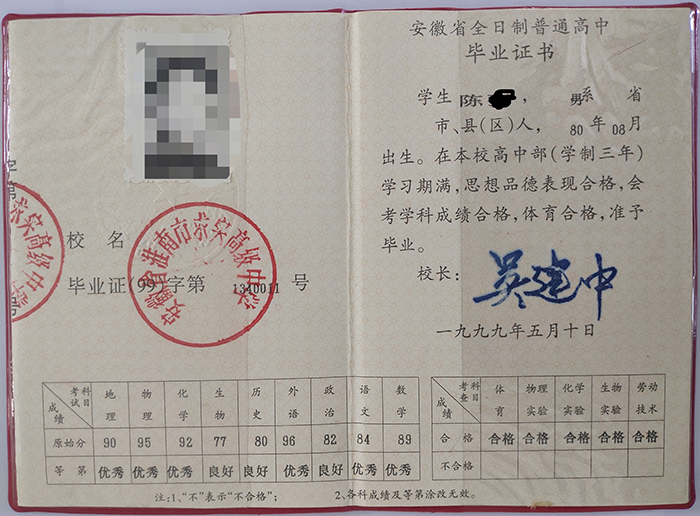 校名
毕业证(99)字第 1340011 号
安徽省淮南市蔡家高级中学
考试科目 成绩 地理 物理 化学 生物 历史 外语 政治 语文 数学
原始分 90 95 92 77 80 96 82 84 89
等第 优秀 优秀 优秀 良好 良好 优秀 优秀 优秀 优秀
注:1、“不”表示“不合格”; 2、各科成绩及等第涂改无效。
安徽省全日制普通高中
毕业证书
学生 陈 , 男 系 省
市、县(区)人, 80 年 08 月
出生。在本校高中部(学制三年)
学习期满,思想品德表现合格,会
考学科成绩合格,体育合格,准予
毕业。
校长: 吴建中
一九九九年五月十日
考查科目 成绩 体育 物理实验 化学实验 生物实验 劳动技术
合格 合格 合格 合格 合格 合格
不合格